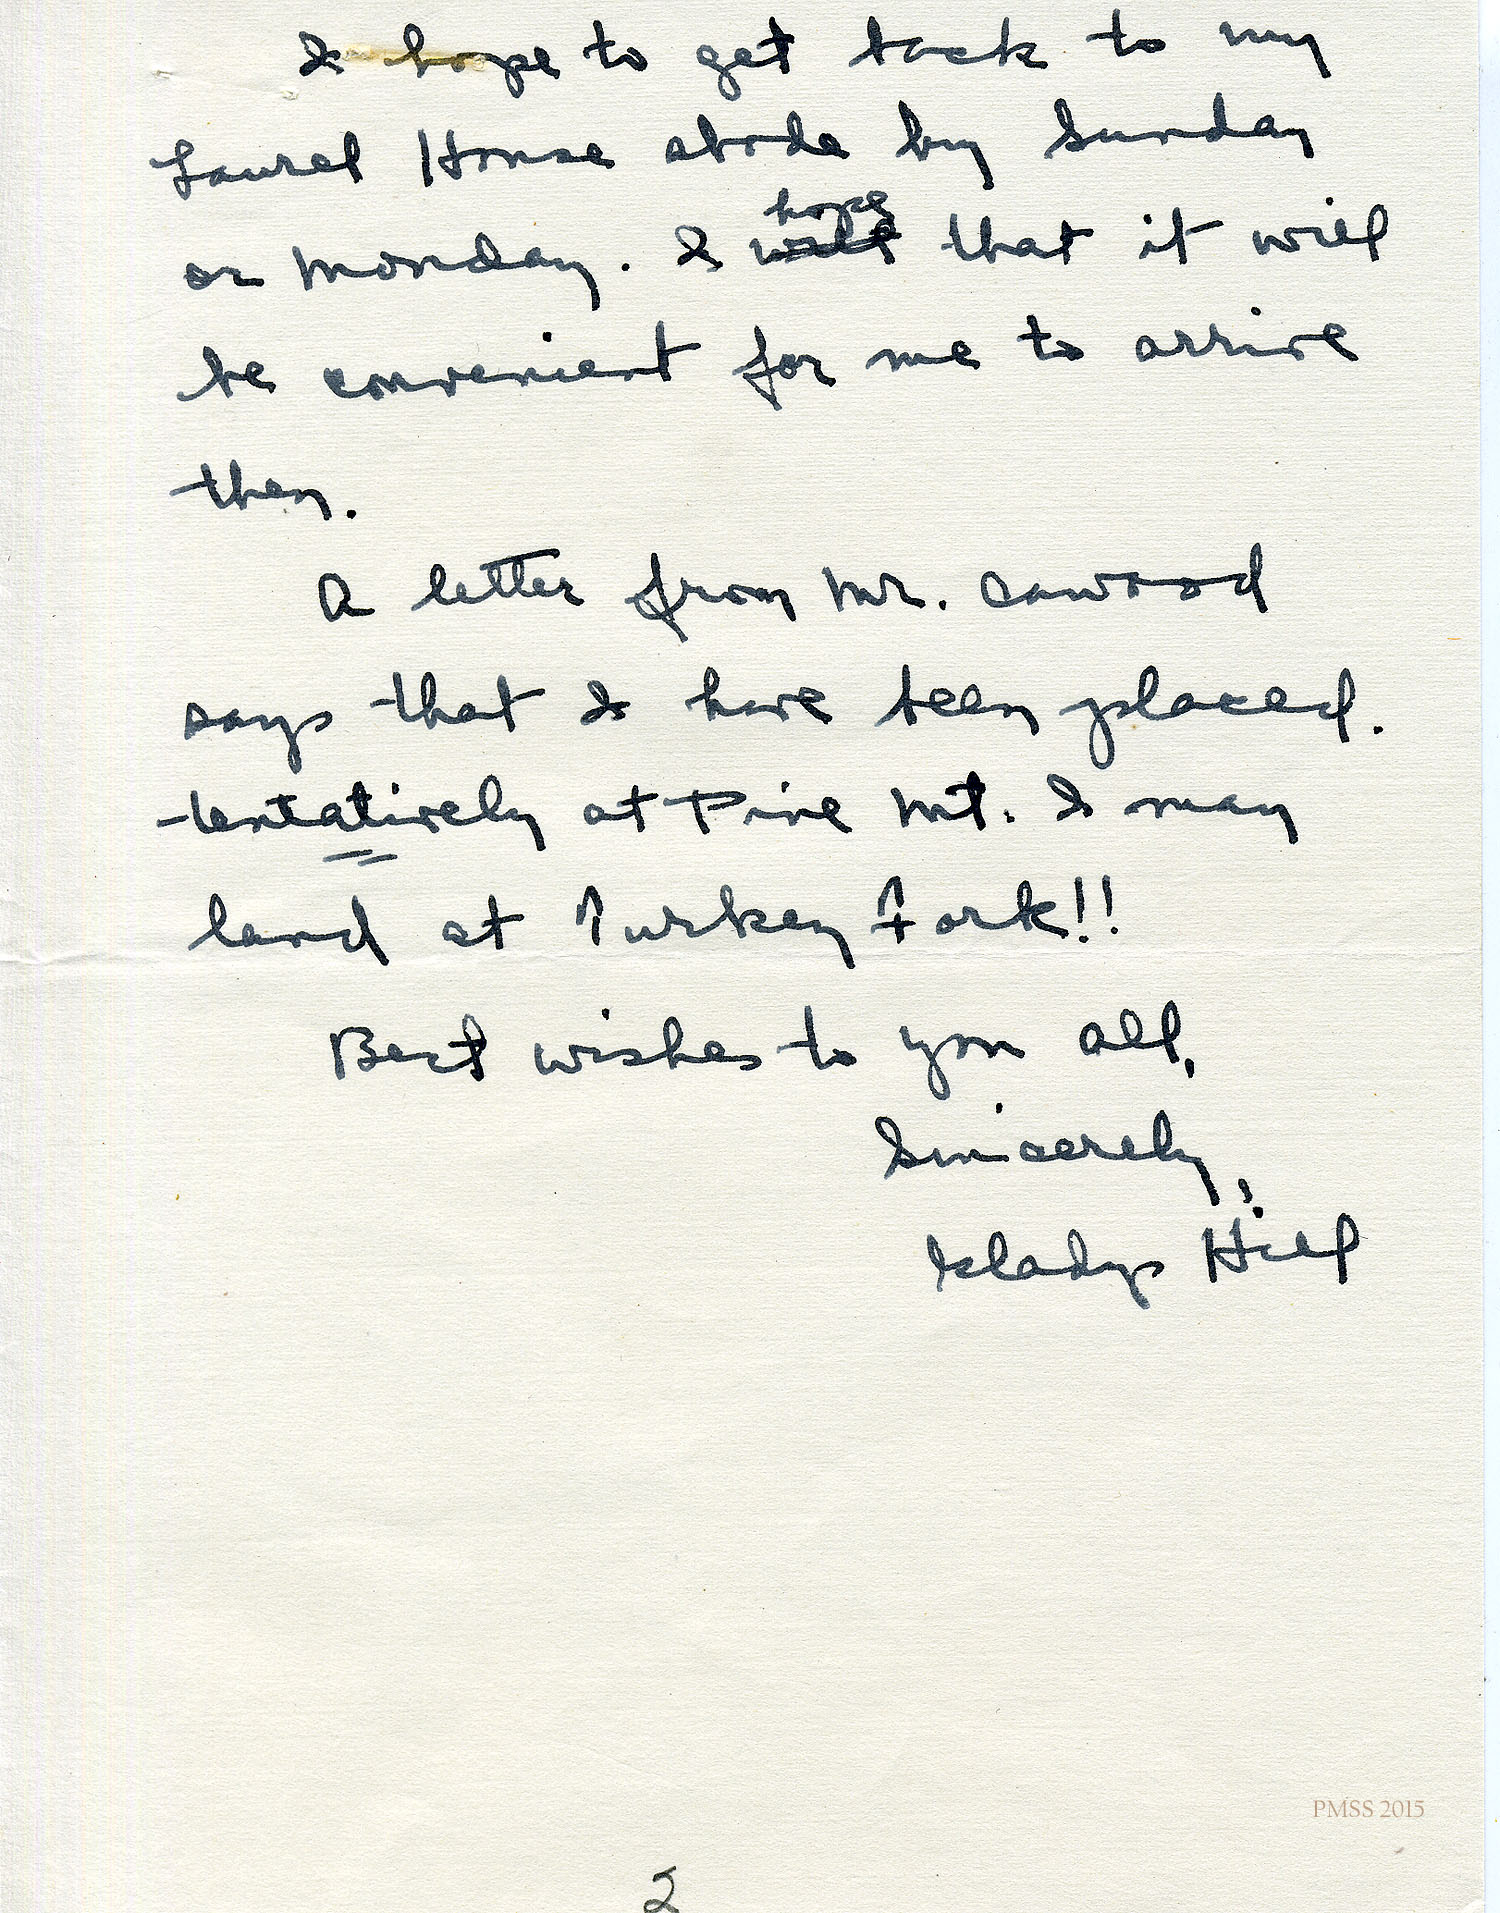 I hope to get back to my
Laurel House abode by Sunday
or Monday. I hope that it will
be convenient for me to arrive
then.
A letter from Mr. Cawood
says that I have been placed.
tentatively at Pine Mt. I may
land at Turkey Fork!!
Best wishes to you all,
Sincerely,
Gladys Hill
PMSS 2015
2